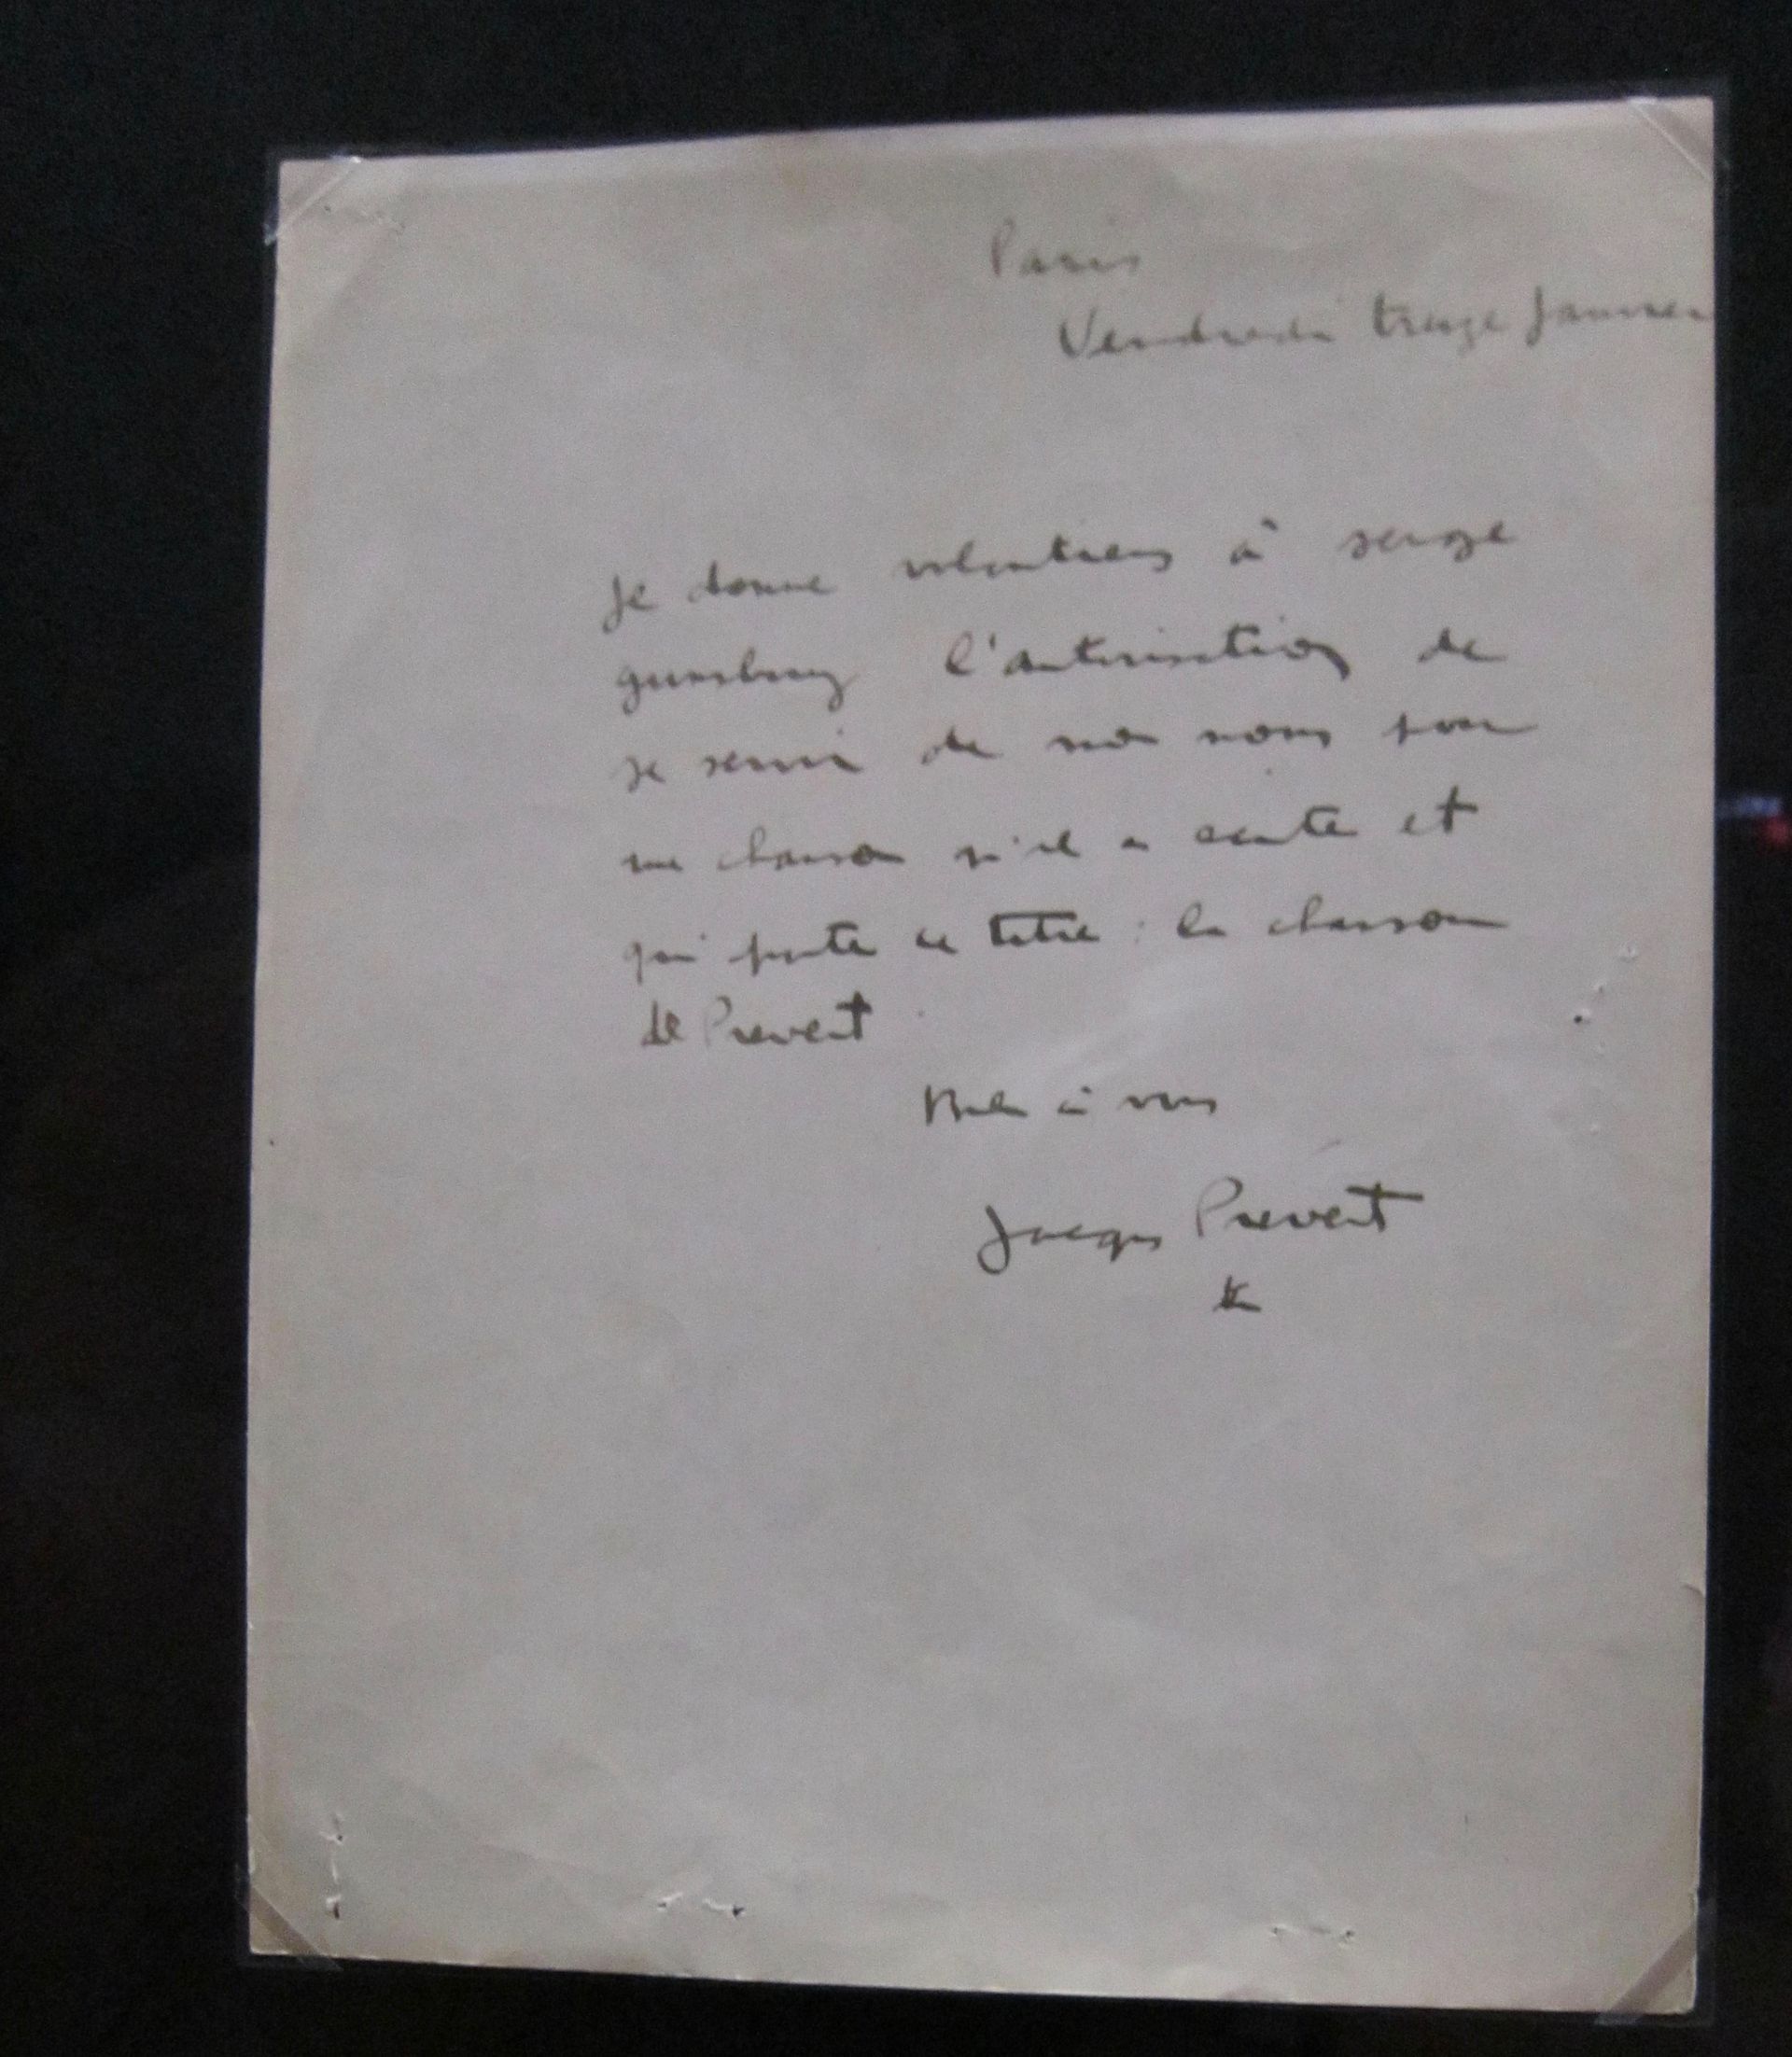 Paris
Vendredi treize Janvier
Je donne volontiers à serge
gainsbourg l'autorisation de
se servir de mon nom pour
une chanson qu'il a écrite et
qui porte ce titre : la chanson
de Prevert
Bien à vous
Jacques Prevert